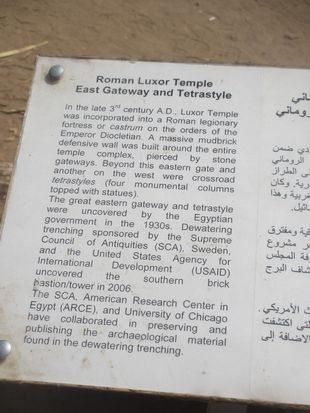 Roman Luxor Temple
East Gateway and Tetrastyle
In the late 3rd century A.D., Luxor Temple
was incorporated into a Roman legionary
fortress or castrum on the orders of the
Emperor Diocletian. A massive mudbrick
defensive wall was built around the entire
temple complex, pierced by stone
gateways. Beyond this eastern gate and
another on the west were crossroad
tetrastyles (four monumental columns
topped with statues).
The great eastern gateway and tetrastyle
were uncovered by the Egyptian
government in the 1930s. Dewatering
trenching sponsored by the Supreme
Council of Antiquities (SCA), Sweden,
and the United States Agency for
International Development (USAID)
uncovered the southern brick
bastion/tower in 2006.
The SCA, American Research Center in
Egypt (ARCE), and University of Chicago
have collaborated in preserving and
publishing the archaeological material
found in the dewatering trenching.
ماني
لروماني
دي ضمن
الروماني
ى الطراز
رية. وكان
غربية وهذا
ماثيل.
ية ومفترق
ر مشروع
فة المجلس
شاف البرج
ث الأمريكي
تى اكتشفت
لاضافة إلى